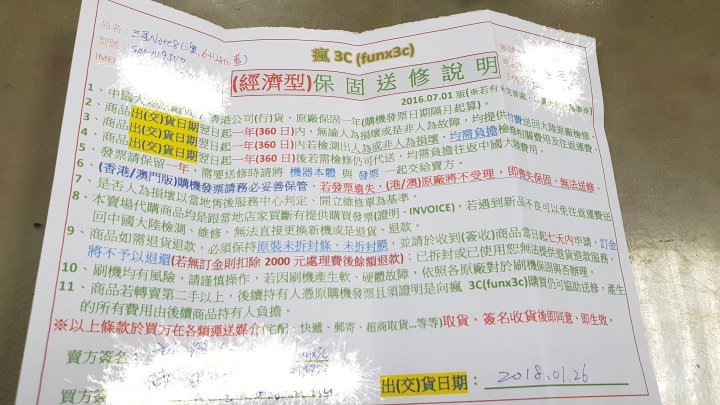 瘋 3C (funx3c)
品名：三星Note8(雙,6+128G,藍)
型號：
(經濟型)保固送修說明
IMEI
2016.07.01 版
1、中國大陸 香港公司(行)貨，原廠保固一年(購機發票日期隔月起算)。
2、商品出(交)貨日期翌日起一年(360 日)內，無論人為損壞或是非人為故障，均提供付費送回大陸原廠檢修。
3、商品出(交)貨日期翌日起一年(360 日)內若檢測出人為或非人為損壞，均需負擔檢修相關費用及往返運費。
4、商品出(交)貨日期翌日起一年(360 日)後若需檢修仍可代送，均需負擔往返中國大陸費用。
5、發票請保留一年，需要送修時請將 機器本體 與 發票 一起交給賣方。
6、(香港/澳門版)購機發票請務必妥善保管，若發票遺失，(港/澳)原廠將不受理，即喪失保固，無法送修。
7、是否人為損壞以當地售後服務中心判定、開立維修單為基準。
8、本賣場代購商品均是跟當地店家買斷有提供購買發票(證明、INVOICE)，若遇到新品不良可以免往返運費送
回中國大陸檢測、維修，無法直接更換新機或是退貨、退款。
9、商品如需退貨退款，必須保持原裝未拆封條、未拆封膜，並請於收到(簽收)商品當日起七天內申請，訂金
將不予以退還(若無訂金則扣除 2000 元處理費後餘額退款)；已拆封或已使用恕無法提供退貨退款服務。
10、刷機均有風險，請謹慎操作，若因刷機產生軟、硬體故障，依照各原廠對於刷機保固與否辦理。
11、商品若轉賣第二手以上，後續持有人憑原購機發票且須證明是向瘋 3C(funx3c)購買仍可協助送修，產生
的所有費用由後續商品持有人負擔。
※以上條款於買方在各類運送媒介(宅配、快遞、郵寄、超商取貨...等等)取貨、簽名收貨後即同意、即生效，
賣方簽名：
買方簽名
出(交)貨日期：2018.01.26